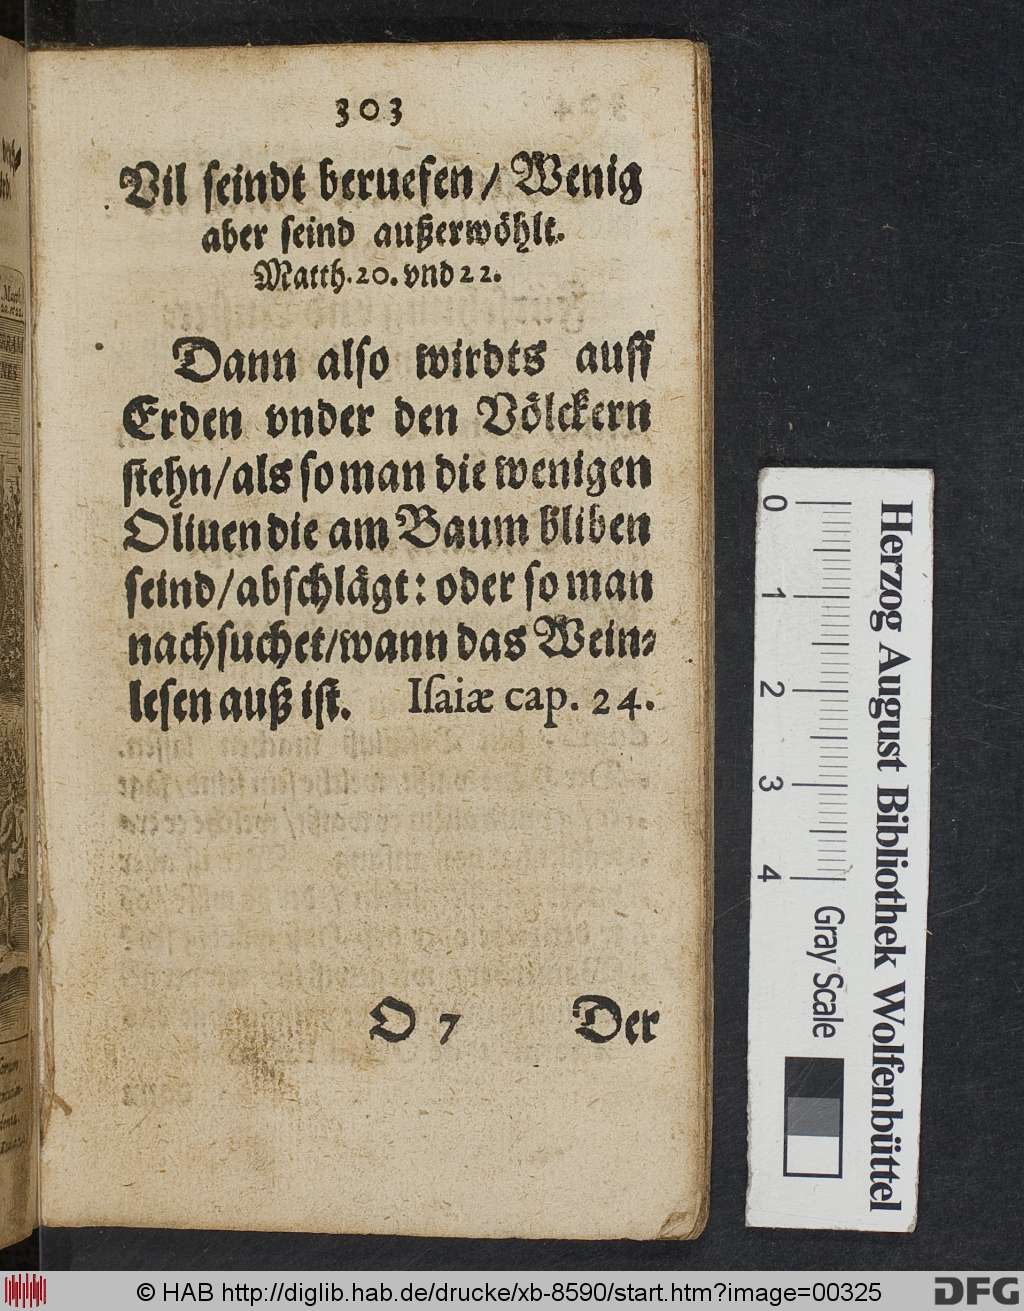 303
Vil seindt beruefen / Wenig
aber seind außerwöhlt.
Matth. 20. vnd 22.
Dann also wirdts auff
Erden vnder den Völckern
stehn / als so man die wenigen
Oliuen die am Baum bliben
seind / abschlägt : oder so man
nachsuchet / wann das Wein-
lesen auß ist. Isaiæ cap. 24.
O 7 Der
0 1 2 3 4
Gray Scale
Herzog August Bibliothek Wolfenbüttel
© HAB http://diglib.hab.de/drucke/xb-8590/start.htm?image=00325
DFG